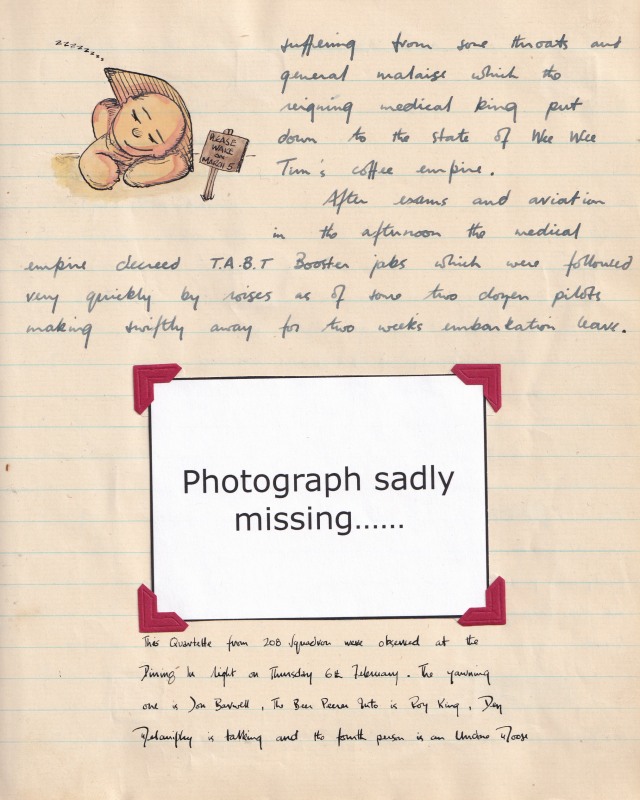 zzzzzzzz...
PLEASE
WAKE
ON
MARCH 5
suffering from sore throats and
general malaise which the
reigning medical king put
down to the state of Wee Wee
Tim's coffee empire.
After exams and aviation
in the afternoon the medical
empire decreed T.A.B.T Booster jabs which were followed
very quickly by noises as of some two dozen pilots
making swiftly away for two weeks embarkation leave.
Photograph sadly
missing......
This Quartette from 208 Squadron were observed at the
Dining In Night on Thursday 6th February. The yawning
one is Jon Barwell, The Beer Peerer Into is Roy King,
is talking and the fourth person is an Undone Moose